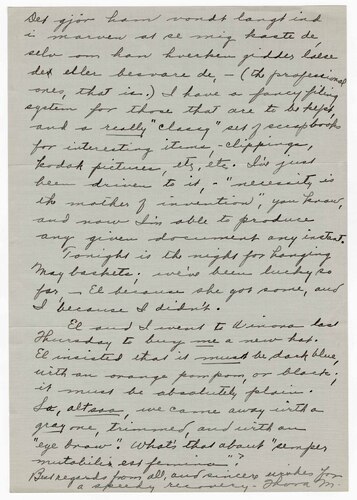 Det gjör ham vondt langt ind
i marven at se mig kaste de,
selv om han hverken gidder läse
det eller besvare de, — (the professional
ones, that is.) I have a fancy filing
system for those that are to be kept,
and a really "classy" set of scrapbooks
for interesting items, - clippings,
kodak pictures, etc, etc. I've just
been driven to it, - "necessity is
the mother of invention", you know,
and now I'm able to produce
any given document any instant.
Tonight is the night for hanging
May baskets; we've been lucky so
far — El because she got some, and
I because I didn't.
El and I went to Winona last
Thursday to buy me a new hat.
El insisted that it must be dark blue,
with an orange pompom, or black;
it must be absolutely plain.
So, altsaa, we came away with a
gray one, trimmed, and with an
"eye brow". What's that about "semper
mutabilis est femina"?
Best regards from all, and sincere wishes for
a speedy recovery. Thora M.